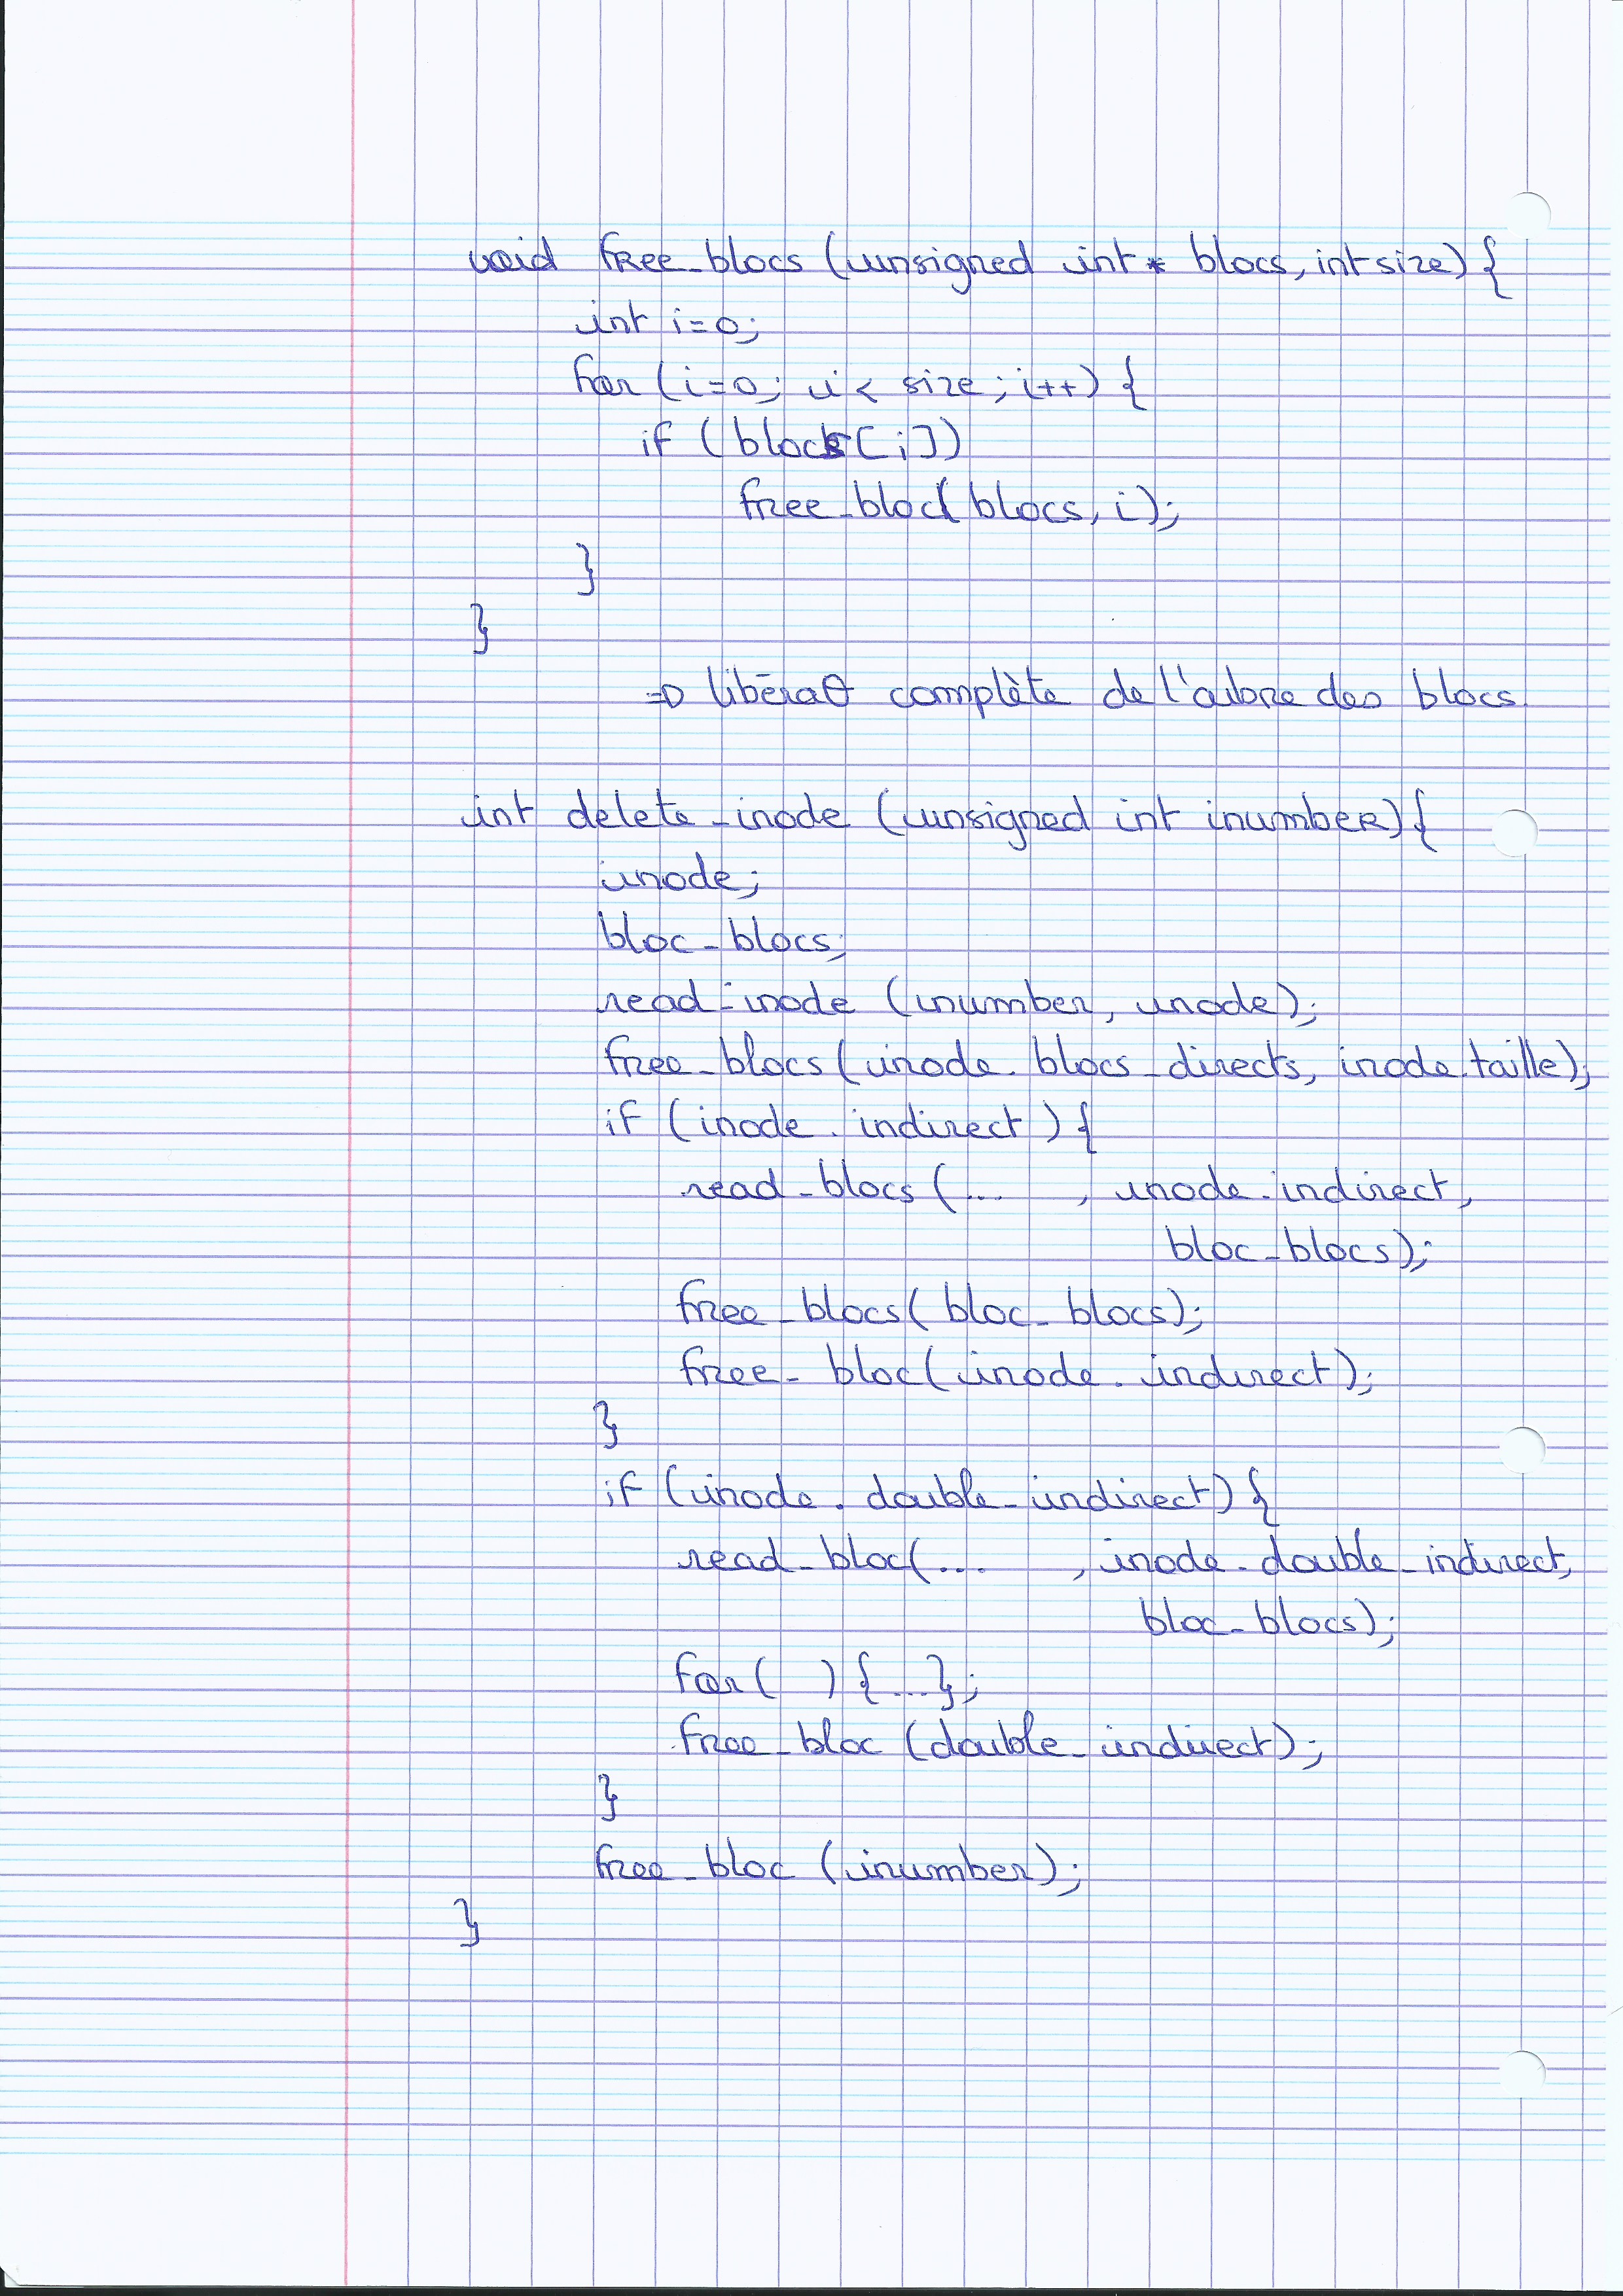 void free_blocs (unsigned int * blocs, int size) {
int i=0;
for (i=0; i < size; i++) {
if (blocs[i])
free_bloc(blocs, i);
}
}
=> libéraθ complète de l'arbre des blocs.
int delete_inode (unsigned int inumber) {
inode;
bloc_blocs;
read_inode (inumber, inode);
free_blocs (inode.blocs_directs, inode.taille);
if (inode.indirect) {
read_blocs (... , inode.indirect,
bloc_blocs);
free_blocs (bloc_blocs);
free_bloc (inode.indirect);
}
if (inode.double_indirect) {
read_bloc(... , inode.double_indirect,
bloc_blocs);
for ( ) {...};
free_bloc (double_indirect);
}
free_bloc (inumber);
}